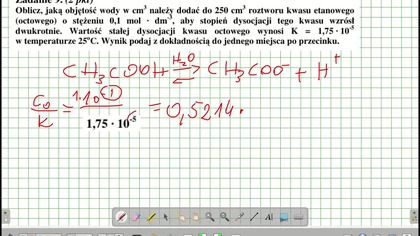 Zadanie 9. (2 pkt)
Oblicz, jaką objętość wody w cm³ należy dodać do 250 cm³ roztworu kwasu etanowego
(octowego) o stężeniu 0,1 mol · dm⁻³, aby stopień dysocjacji tego kwasu wzrósł
dwukrotnie. Wartość stałej dysocjacji kwasu octowego wynosi K = 1,75 · 10⁻⁵
w temperaturze 25°C. Wynik podaj z dokładnością do jednego miejsca po przecinku.
CH₃COOH ⇌ H₂O CH₃COO⁻ + H⁺
C₀/K = 1·10⁻¹ / 1,75 · 10⁻⁵ = 0,5214 ·